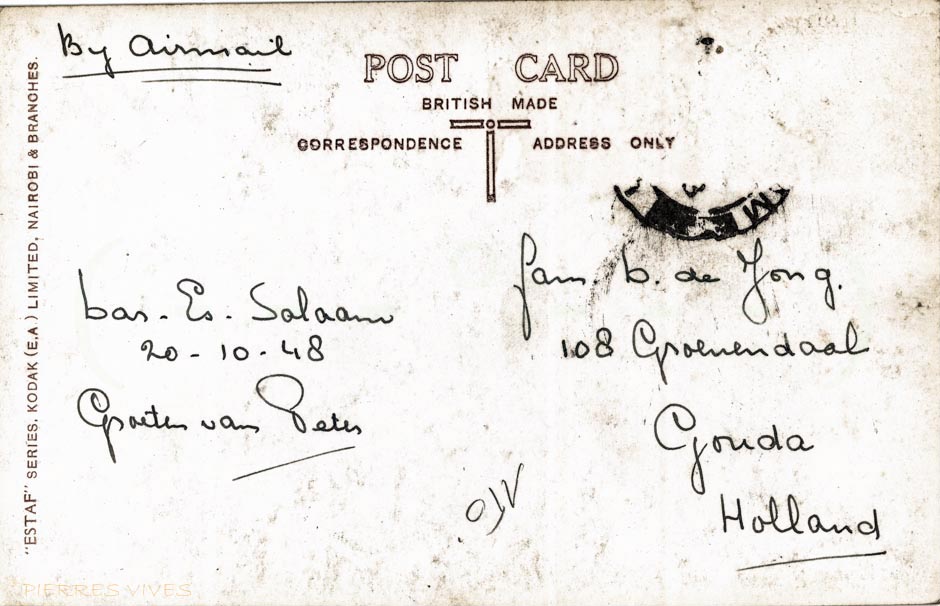 By Airmail
POST CARD
BRITISH MADE
CORRESPONDENCE ADDRESS ONLY
"ESTAF" SERIES. KODAK (E.A.) LIMITED. NAIROBI & BRANCHES.
Dar-Es-Salaam
20-10-48
Groeten van Peter
fam. D. de Jong.
108 Groenendaal
Gouda
Holland
PIERRES VIVES